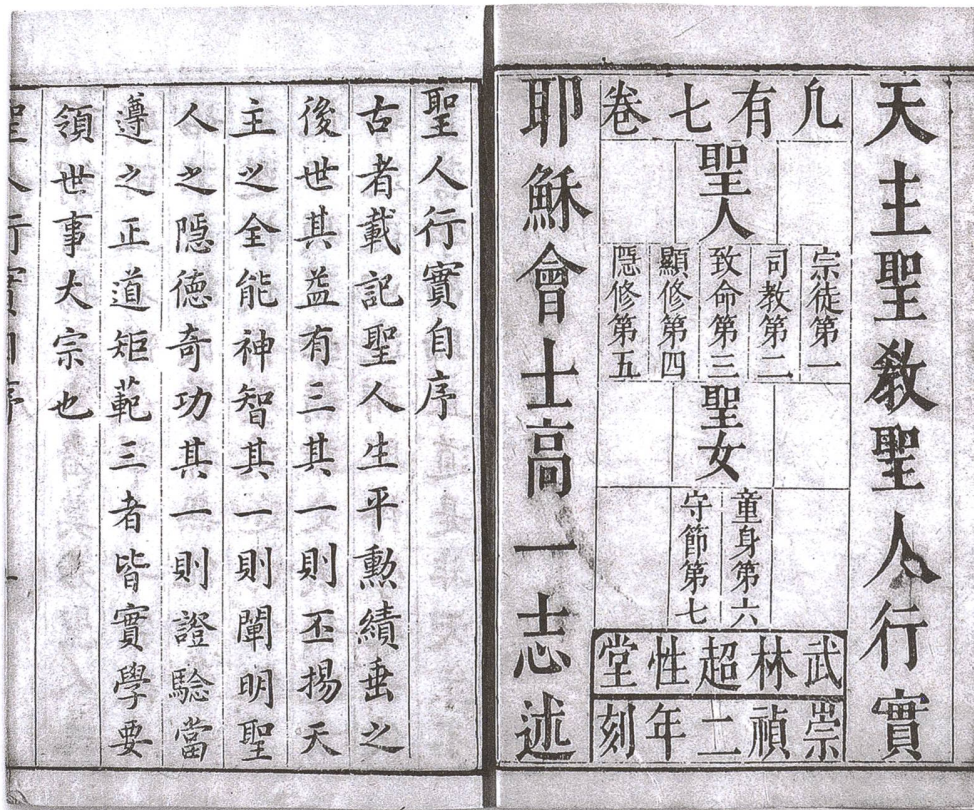 天主聖教聖人行實
凡有七卷
聖人
宗徒第一
司教第二
致命第三
顯修第四
隱修第五
聖女
童身第六
守節第七
武林超性堂
崇禎二年刻
耶穌會士高一志述
聖人行實自序
古者載記聖人生平勳績垂之
後世其益有三其一則丕揚天
主之全能神智其一則闡明聖
人之隱德奇功其一則證驗當
遵之正道矩範三者皆實學要
領世事大宗也
聖人行實自序
一